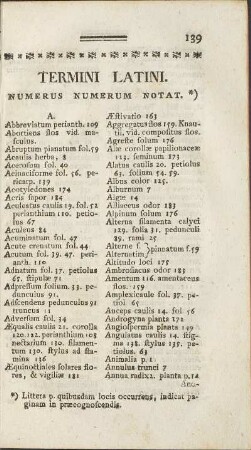 139
TERMINI LATINI.
NUMERUS NUMERUM NOTAT. *)
A.
Abbreviatum perianth. 109
Abortiens flos vid. masculus.
Abruptum pinnatum fol. 59
Acaulis herba, 8
Acerosum fol. 40
Acinaciforme fol. 56. pericarp. 139
Acotyledones 174
Acris sapor 184
Aculeatus caulis 19. fol. 52
perianthium 110. petiolus 67
Aculeus 84
Acuminatum fol. 47
Acute crenatum fol. 44
Acutum fol. 39. 47. perianth. 110
Adnatum fol. 37. petiolus
67, stipulæ 71
Adpressum folium. 33. pedunculus 91.
Adscendens pedunculus 91
truncus 11
Adversum fol. 34
Æqualis caulis 21. corolls
120. 122. perianthium 108
nectarium 130. filamentum 130. stylus ad stamina 136
Æquinoctiales solares flores, & vigiliæ 181
Æstivatio 163
Aggregatus flos 159. Knautii, vid. compositus flos.
Agreste folum 176
Alæ corollæ papilionaceæ
123. seminum 173
Alatus caulis 20. petiolus
63. folium 54. 59.
Albus color 125.
Alburnum 7
Aliger 14
Alliaceus odor 183
Alpinum folum 176
Alterna filamenta calyci
129. folia 31. pedunculi
89. rami 25
Alterne f. } pinnatum f. 59
Alternatim }
Altitudo loci 175
Ambrosiacus odor 183
Amentum 116. amentaceus
flos. 159
Amplexicaule fol. 37. petiol 65
Anceps caulis 14. fol 56
Androgyna planta 172
Angiospermis planta 149
Angulatus caulis 14. stigma 138. stylus 135. petiolus. 63
Animalis p. 1
Annus truncus 7
Annua radix 2. planta p. 12
Ano-
*) Littera p. quibusdam locis occurrens, indicat paginam in præcognoscendis.